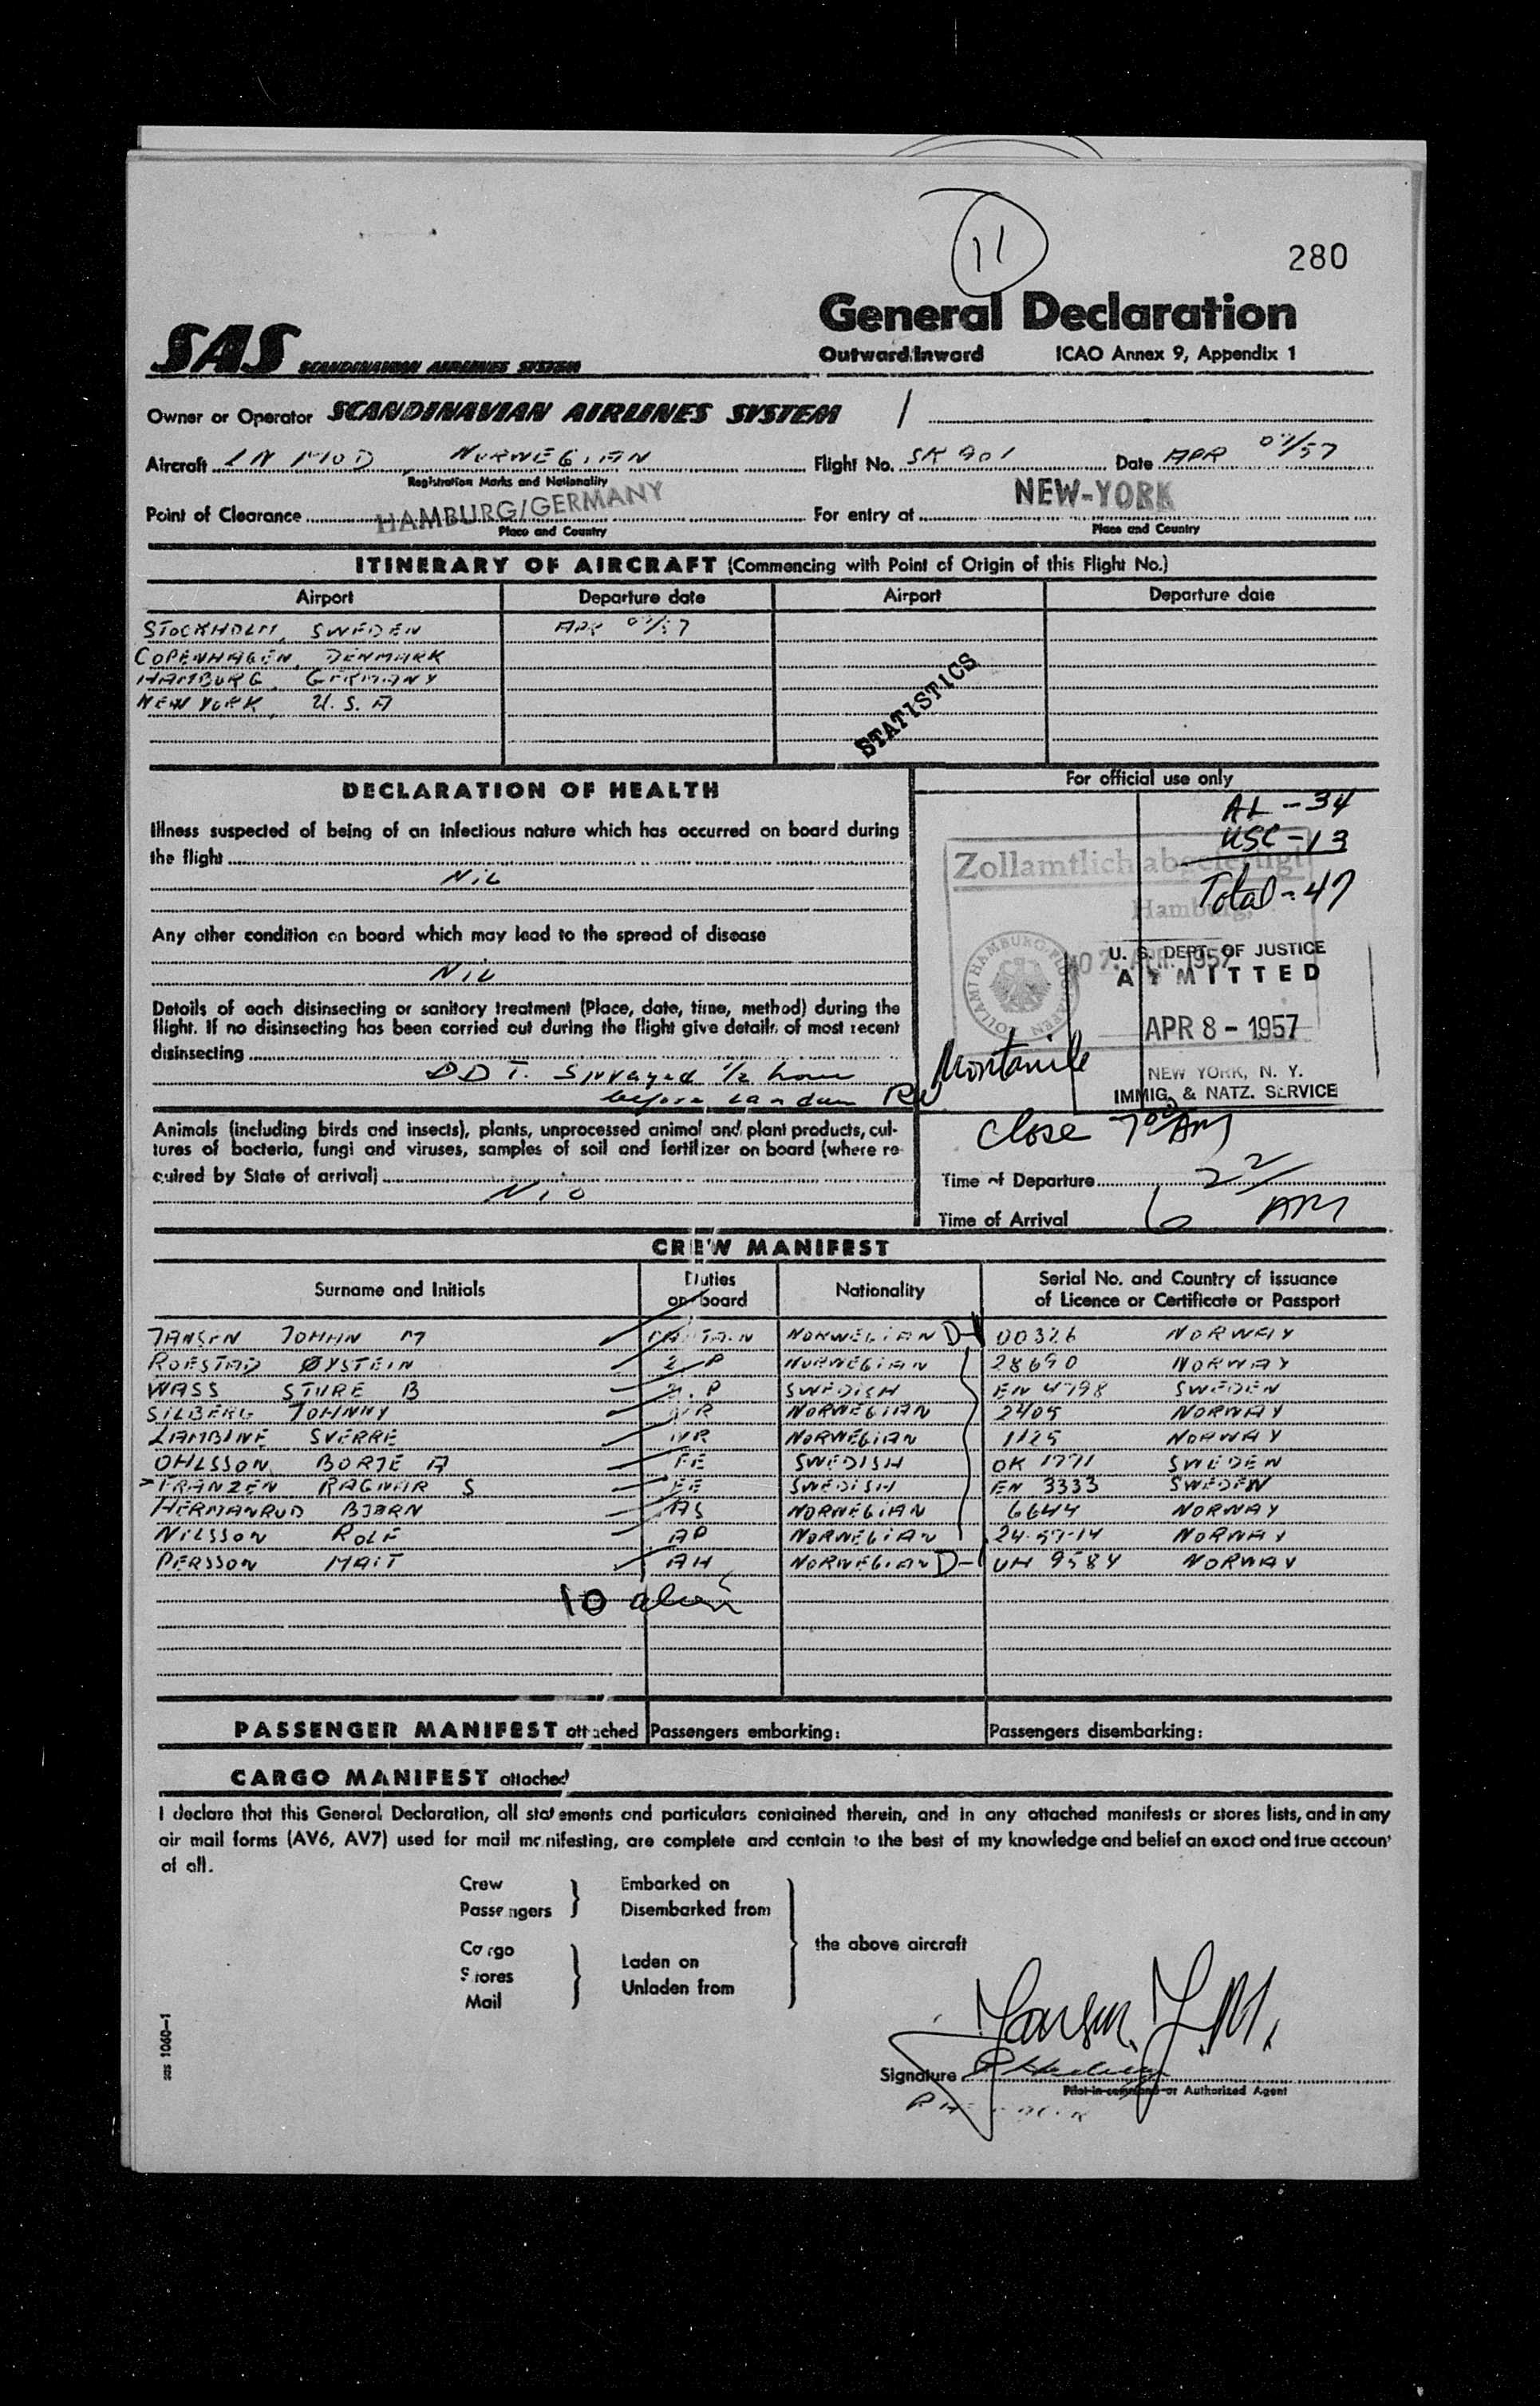 11
280
General Declaration
SAS SCANDINAVIAN AIRLINES SYSTEM
Outward/Inward ICAO Annex 9, Appendix 1
Owner or Operator SCANDINAVIAN AIRLINES SYSTEM /
Aircraft LN MOD NORWEGIAN Flight No. SK 901 Date APR 07/57
Registration Marks and Nationality
Point of Clearance HAMBURG/GERMANY For entry at NEW-YORK
Place and Country Place and Country
ITINERARY OF AIRCRAFT (Commencing with Point of Origin of this Flight No.)
Airport Departure date Airport Departure date
STOCKHOLM, SWEDEN APR 07/57
COPENHAGEN, DENMARK
HAMBURG, GERMANY
NEW YORK, U.S.A
STATISTICS
DECLARATION OF HEALTH
Illness suspected of being of an infectious nature which has occurred on board during
the flight
NIL
Any other condition on board which may lead to the spread of disease
NIL
Details of each disinsecting or sanitary treatment (Place, date, time, method) during the
flight. If no disinsecting has been carried out during the flight give details of most recent
disinsecting
DDT. Sprayed 1/2 hour
before
Animals (including birds and insects), plants, unprocessed animal and plant products, cul-
tures of bacteria, fungi and viruses, samples of soil and fertilizer on board (where re-
quired by State of arrival)
For official use only
AL - 34
USC - 13
Total - 47
Zollamtlich abgefertigt
Hamburg,
07. APR. 1957
ZOLLAMT HAMBURG-FLUGHAFEN
U. S. DEPT. OF JUSTICE
ADMITTED
APR 8 - 1957
NEW YORK, N. Y.
IMMIG. & NATZ. SERVICE
Close 7 00 AM
Time of Departure
Time of Arrival 6 AM
CREW MANIFEST
Surname and Initials Duties on board Nationality Serial No. and Country of issuance of Licence or Certificate or Passport
JANSEN JOHAN M CAPTAIN NORWEGIAN D- 00326 NORWAY
ROESTAD ØYSTEIN 2.P NORWEGIAN 28690 NORWAY
WASS STURE B 2.P SWEDISH EN 4798 SWEDEN
SILBERG JOHNNY NORWEGIAN 2405 NORWAY
LAMBINE SVERRE NORWEGIAN 1125 NORWAY
OHLSSON BORJE A FE SWEDISH OK 1771 SWEDEN
FRANZEN RAGNAR S FE SWEDISH EN 3333 SWEDEN
HERMANRUD BJØRN AS NORWEGIAN 6644 NORWAY
NILSSON ROLF AP NORWEGIAN 24-57-14 NORWAY
PERSSON MAIT AH NORWEGIAN D- UH 9584 NORWAY
10
PASSENGER MANIFEST attached Passengers embarking: Passengers disembarking:
CARGO MANIFEST attached
I declare that this General Declaration, all statements and particulars contained therein, and in any attached manifests or stores lists, and in any
air mail forms (AV6, AV7) used for mail manifesting, are complete and contain to the best of my knowledge and belief an exact and true account
of all.
Crew Embarked on
Passengers Disembarked from
the above aircraft
Cargo
Laden on
Stores
Unladen from
Mail
Jansen. J.M.
Signature
Pilot-in-command or Authorized Agent
sas 1060—1